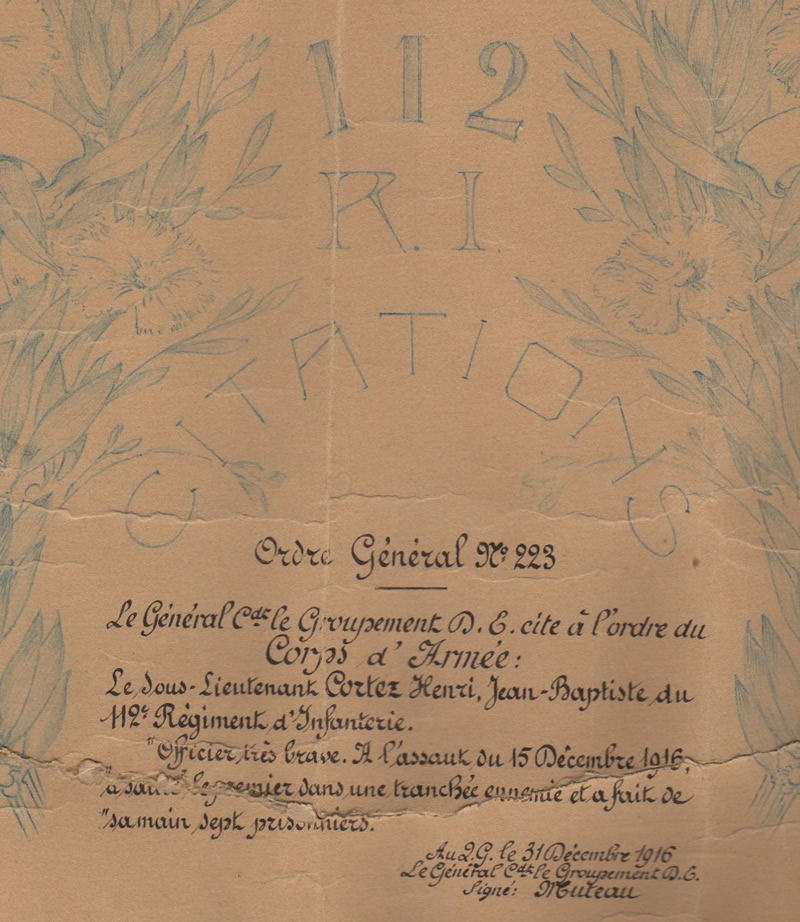 112
R.I.
CITATIONS
Ordre Général Nº 223
Le Général Cdt le Groupement D. E. cite à l'ordre du
Corps d'Armée:
Le Sous-Lieutenant Cortez Henri, Jean-Baptiste du
112e Régiment d'Infanterie.
"Officier très brave. A l'assaut du 15 Décembre 1916,
"a sauté le premier dans une tranchée ennemie et a fait de
"sa main sept prisonniers.
Au Q.G. le 31 Décembre 1916
Le Général Cdt le Groupement D.E.
Signé: Muteau